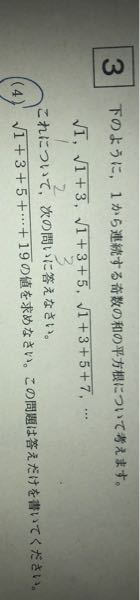 3
下のように，1から連続する奇数の和の平方根について考えます。
√1，√1+3，√1+3+5，√1+3+5+7，…
1 2 3
これについて，次の問いに答えなさい。
(4) √1+3+5+…+19の値を求めなさい。この問題は答えだけを書いてください。